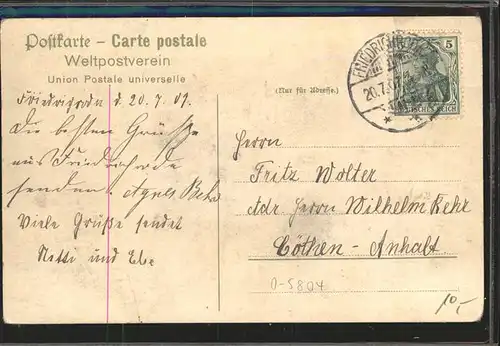 Postkarte – Carte postale
Weltpostverein
Union Postale universelle
(Nur für Adresse.)
d. 20. 7. 09.
Die besten Grüße
aus Friedrichroda
senden. Agnes Behr
Viele Grüße sendet
Netti und
FRIEDRICHRODA
20.7.
5
DEUTSCHES REICH
Herrn
Fritz Wolter
Adr. Herrn Wilhelm Behr
Cöthen - Anhalt.
0-5804
10,-